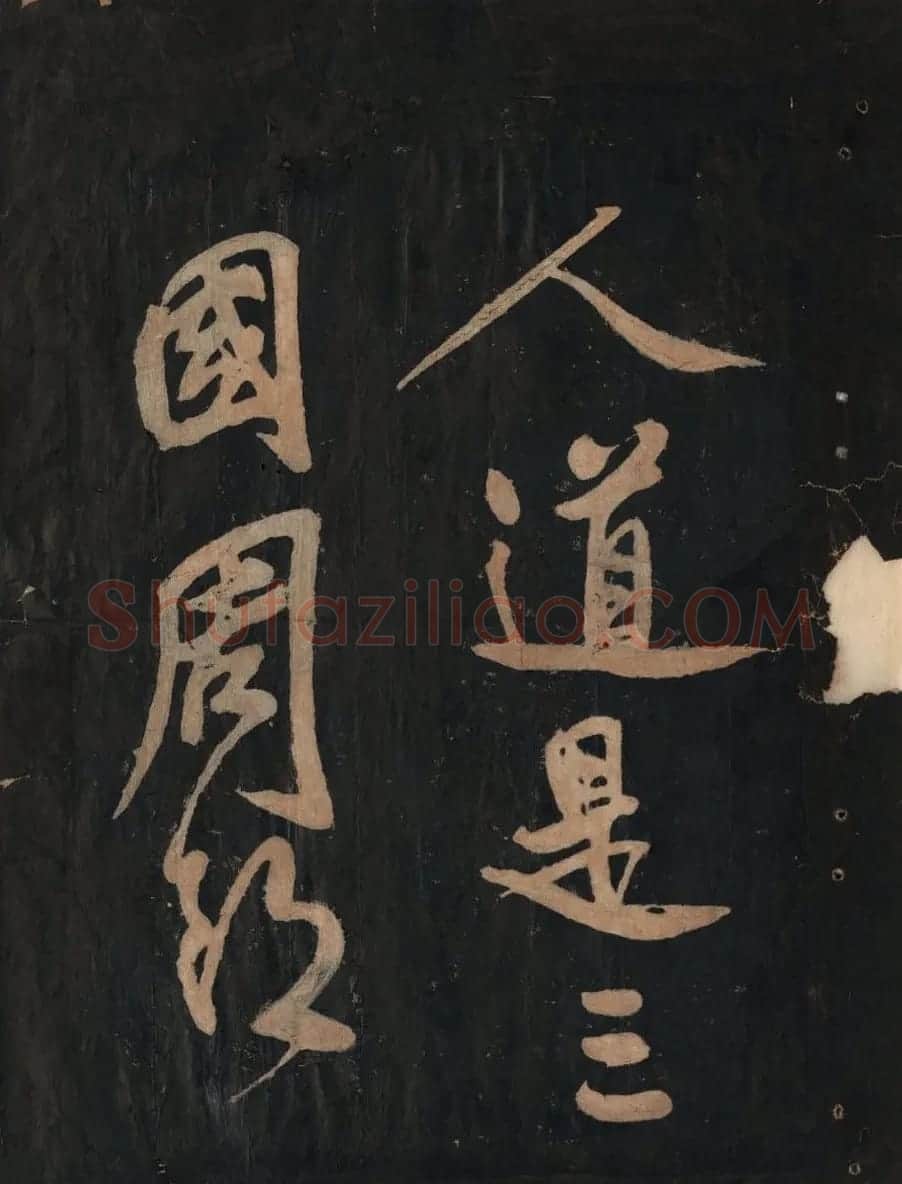 人道是三
國周郎
Shufaziliao.COM